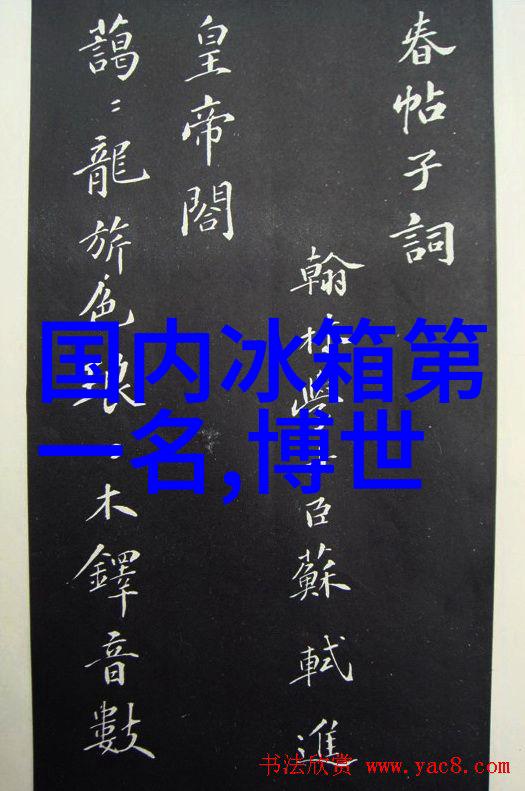 春帖子詞
翰林學士臣蘇軾進
皇帝閤
藹〻龍旂色琅〻木鐸音數
国内冰箱第
一名,博世
书法欣赏 www.yac8.com